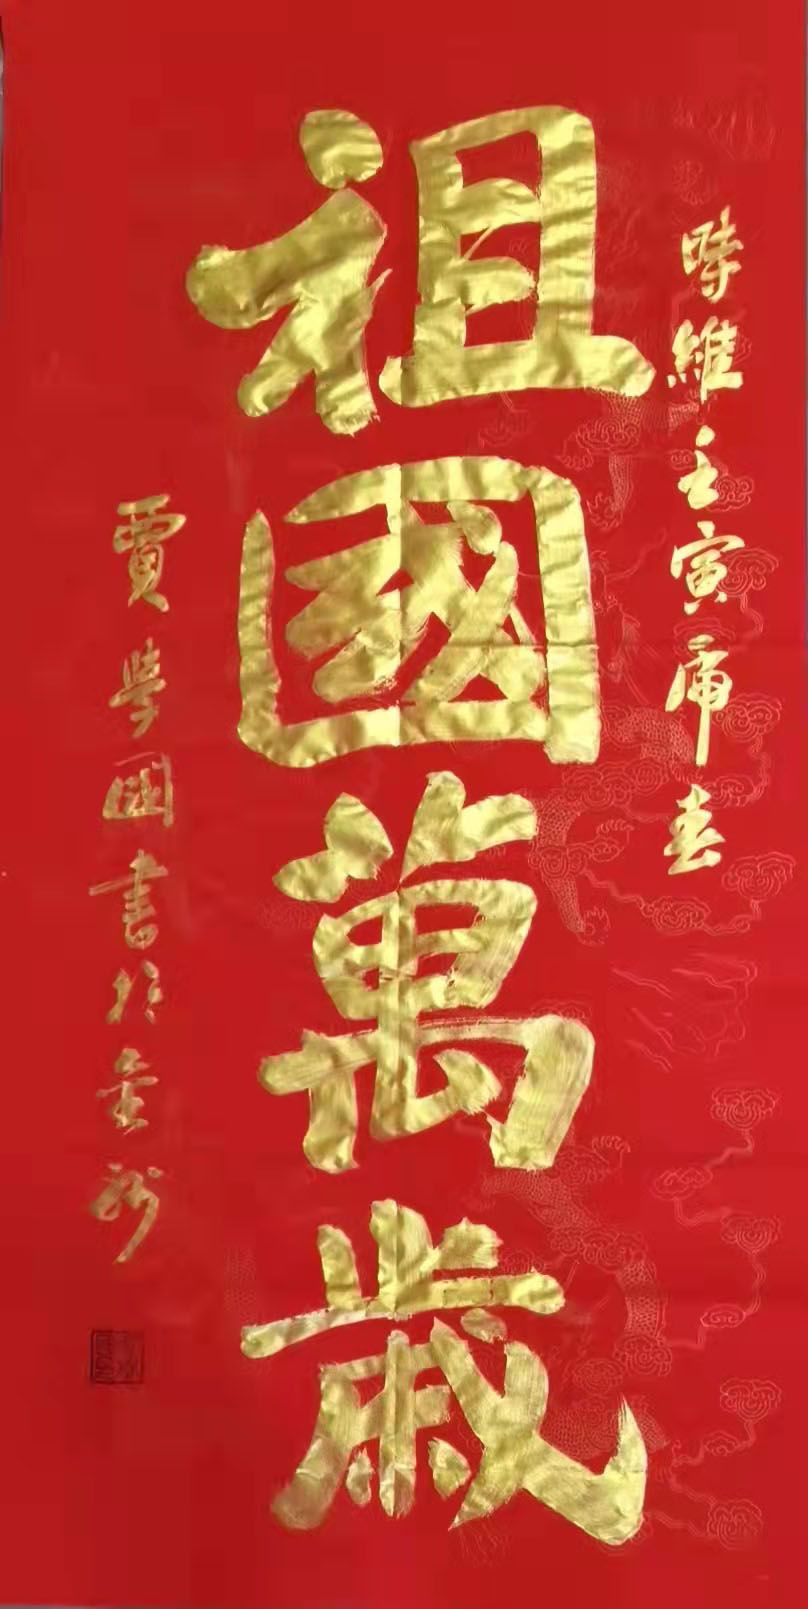 時維壬寅虎春
祖國萬歲
賈學國書於金